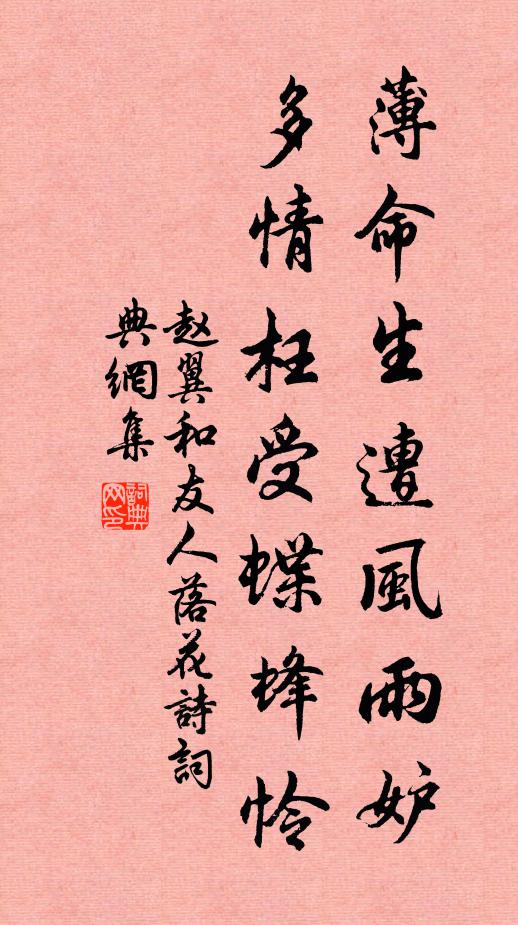 薄命生遭風雨妒
多情枉受蝶蜂怜
赵翼和友人落花詩詞
典網集
詞典网印